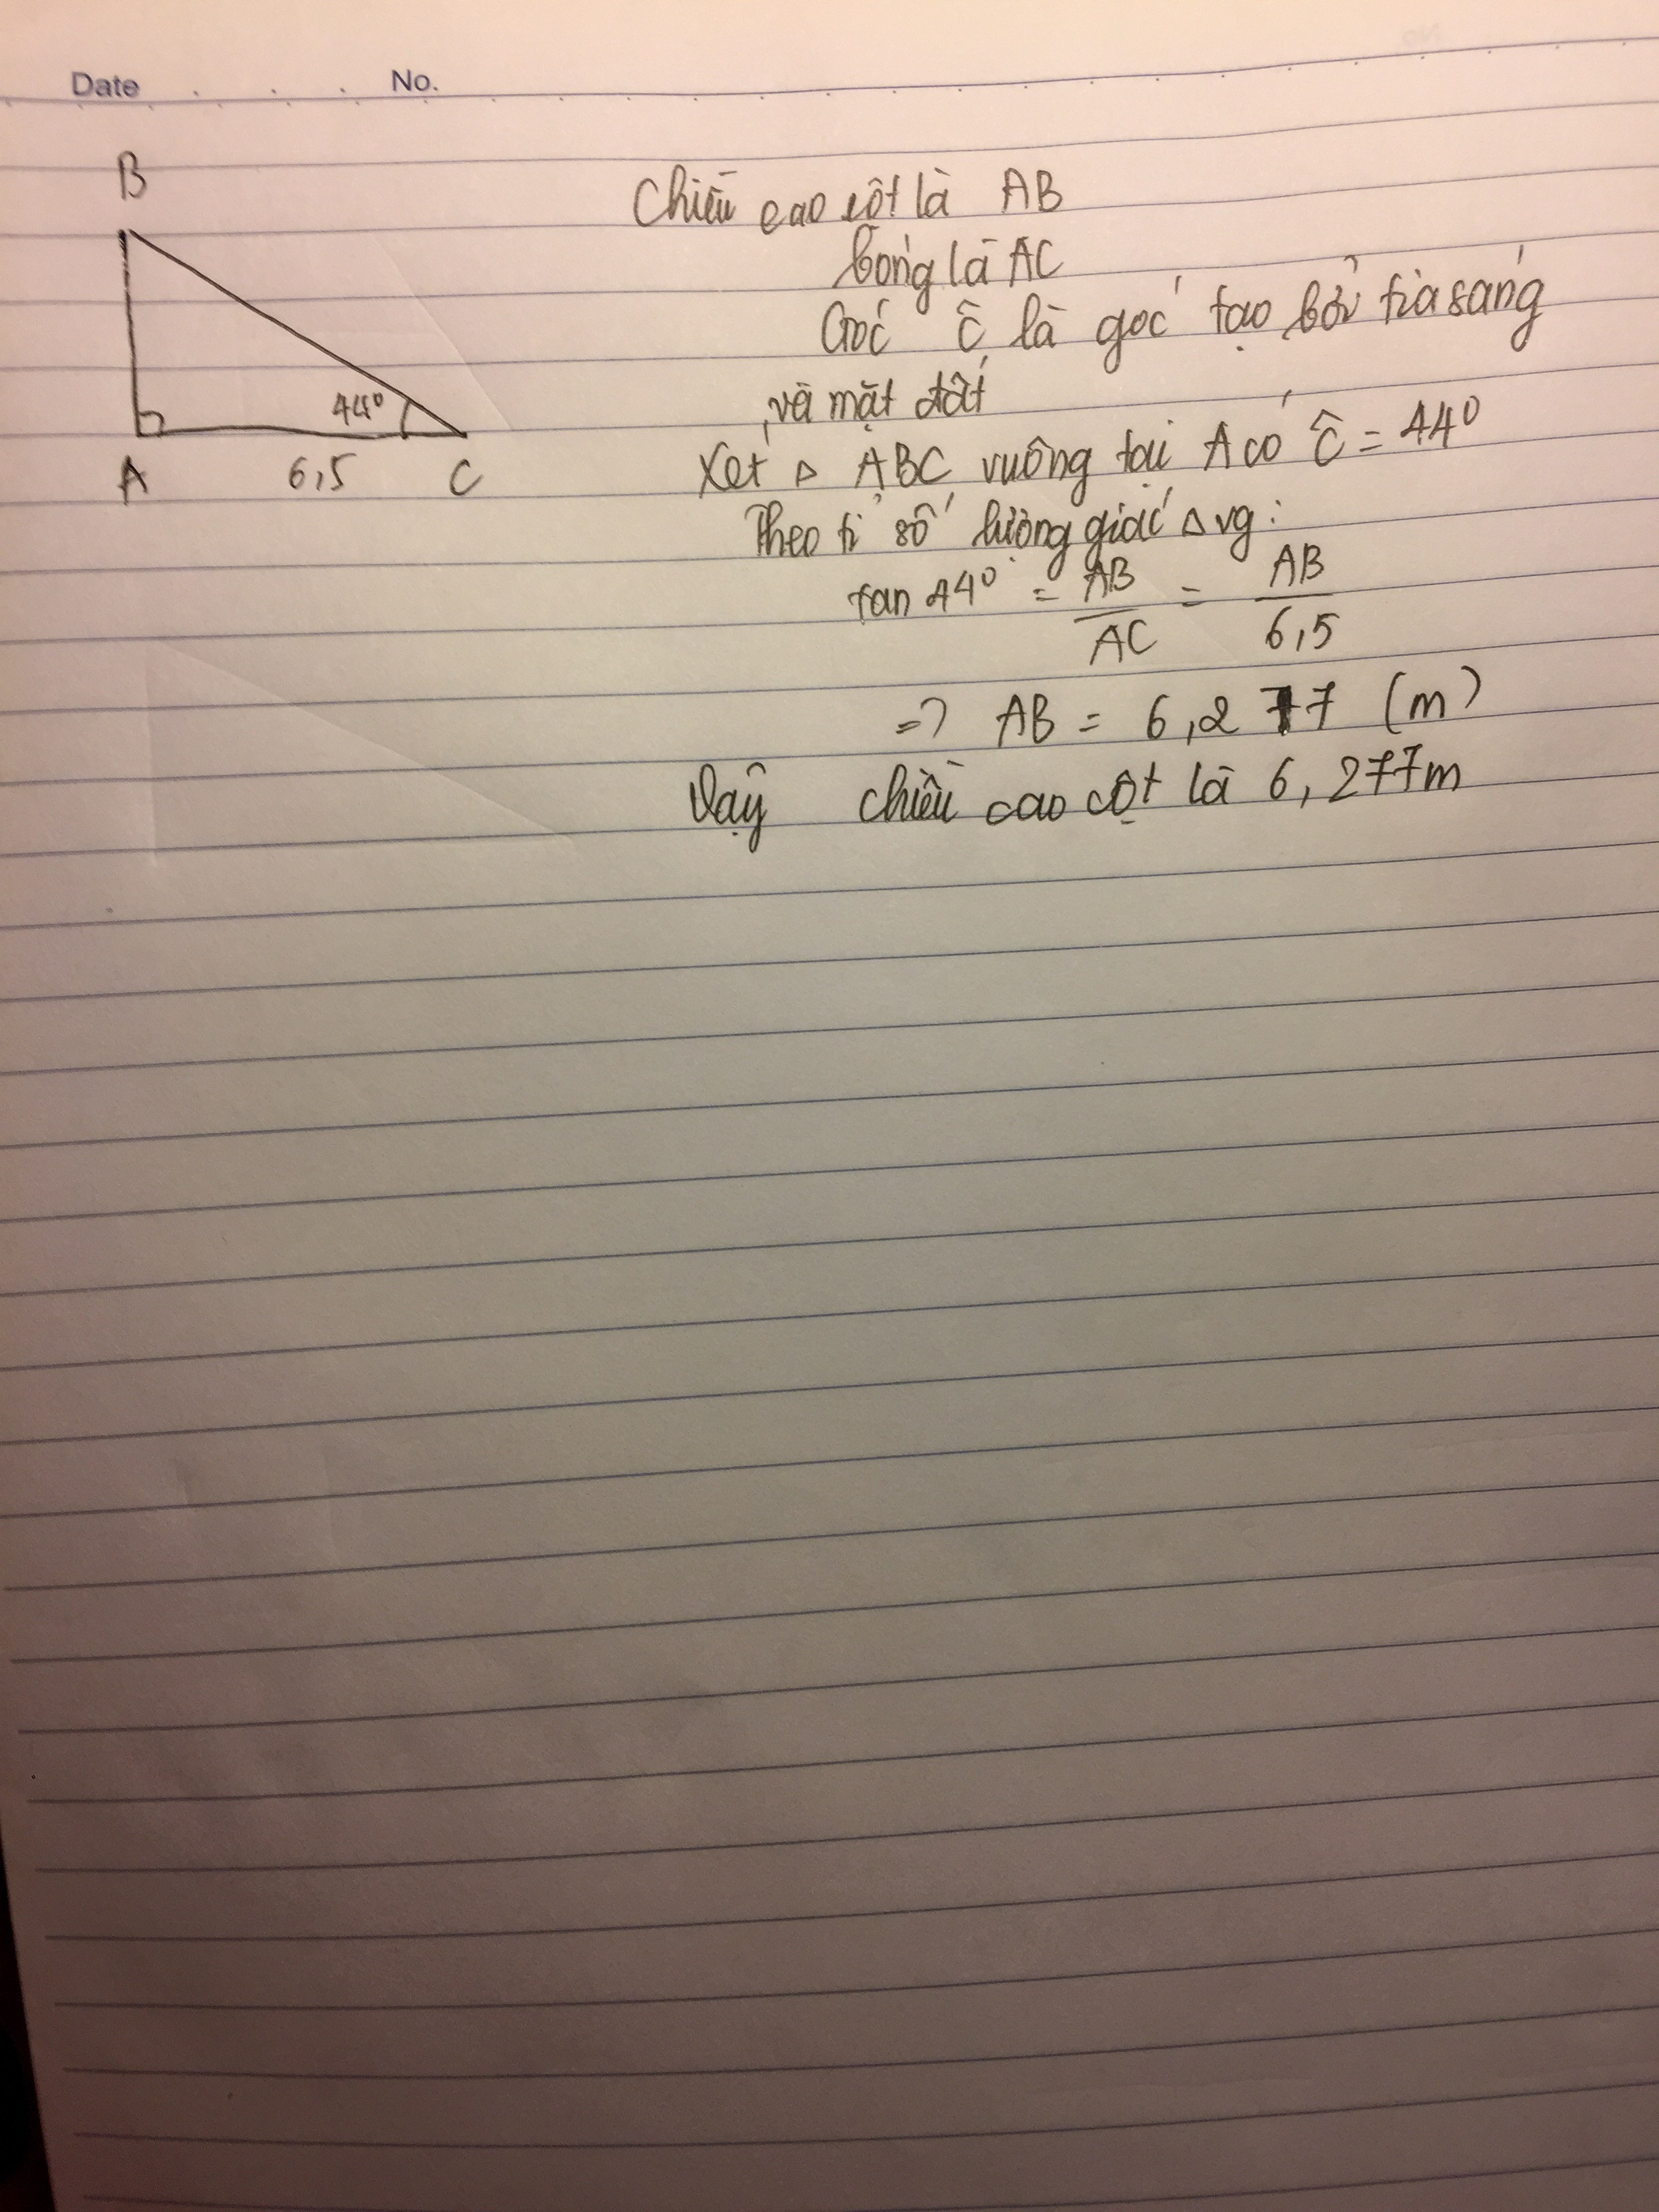 Date No.
B
44°
A 6,5 C
Chiều cao cột là AB
bóng là AC
Góc Ĉ là góc tạo bởi tia sáng
và mặt đất
Xét △ ABC vuông tại A có Ĉ = 44°
Theo tỉ số lượng giác △ vg :
tan 44° = AB/AC = AB/6,5
=> AB = 6,277 (m)
Vậy chiều cao cột là 6,277m